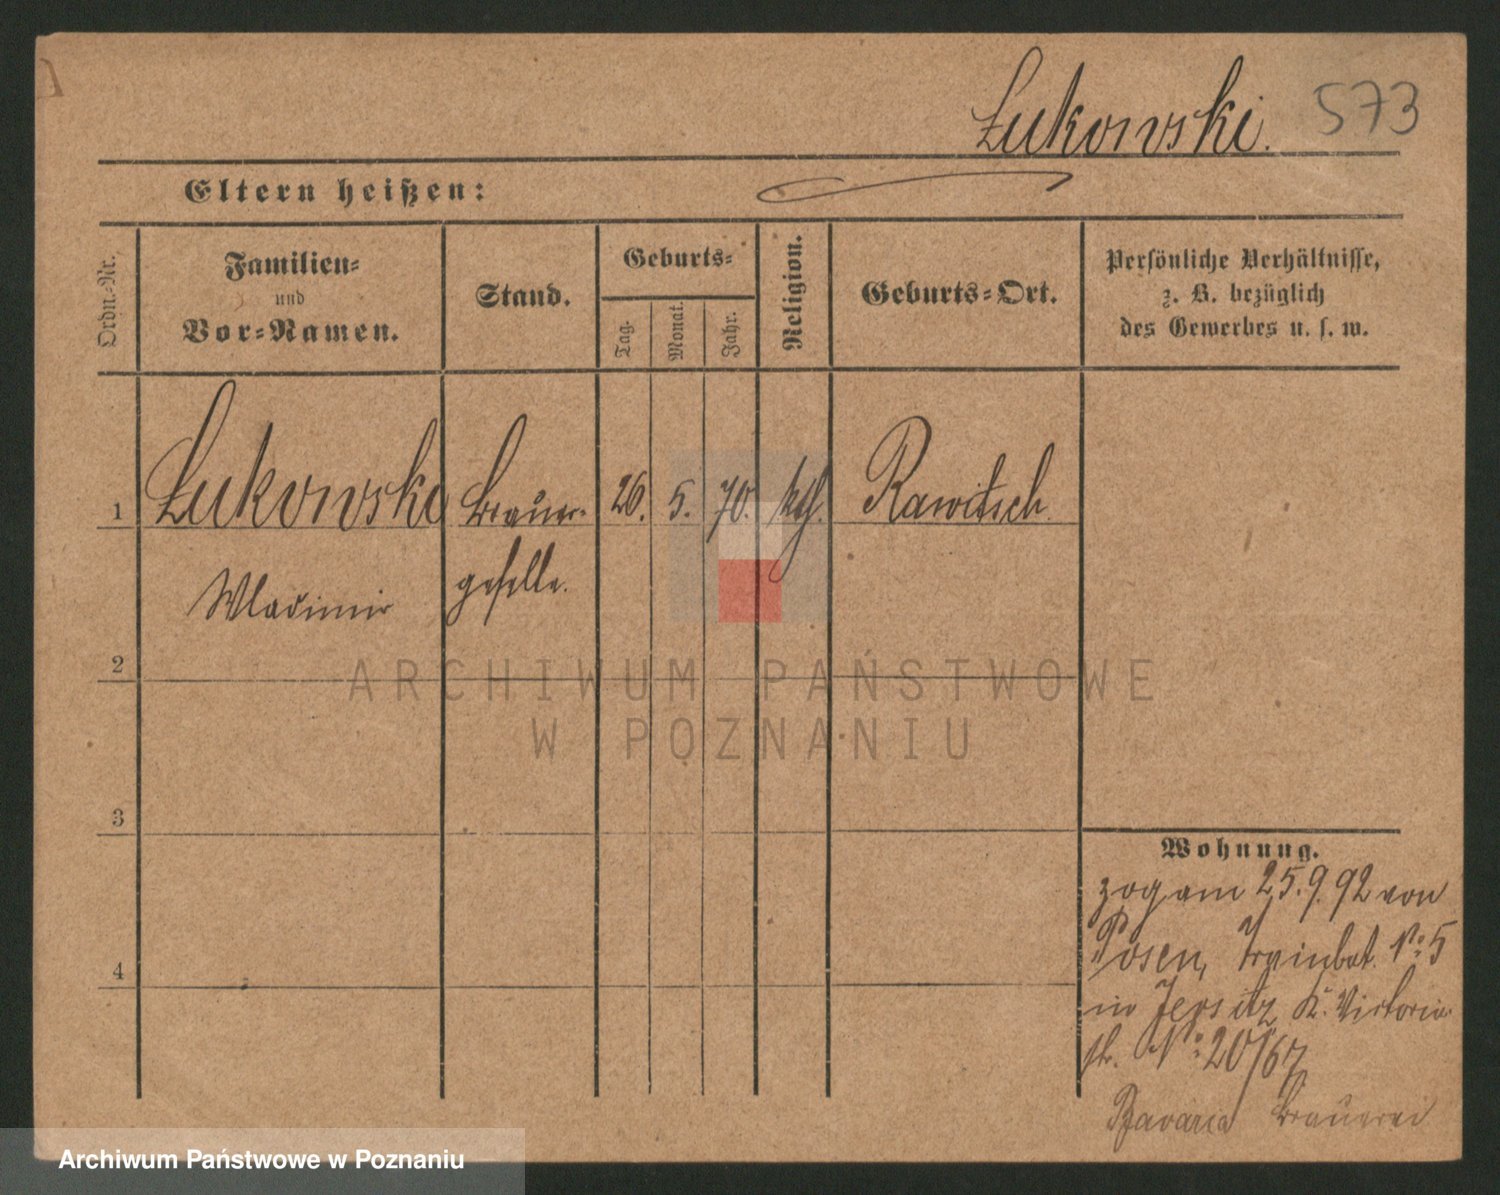 Łukowski. 573
Eltern heißen:
Ordn.-Nr.
Familien-
und
Vor-Namen.
Stand.
Geburts-
Tag.
Monat.
Jahr.
Religion.
Geburts-Ort.
Persönliche Verhältnisse,
z. B. bezüglich
des Gewerbes u. s. w.
1 Łukowski Brauer- 26. 5. 70. kth. Rawitsch.
Wladimir geselle.
2
ARCHIWUM PAŃSTWOWE
W POZNANIU
3
Wohnung.
zog am 25.9.92 von
Posen, Trainbat. No 5
4
in Jersitz, K. Victoria-
str. No 20/67
Bavaria Brauerei
Archiwum Państwowe w Poznaniu